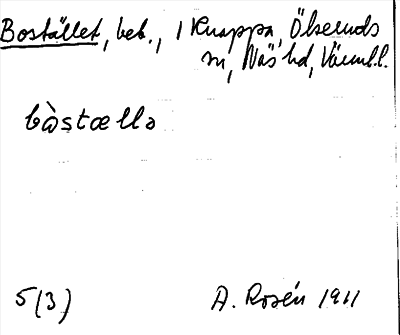 Bostället, beb., 1 Knappa, Ölseruds
sn, Näs hd, Värml.l.
bòstællə
5(3)
A. Rosén 1911